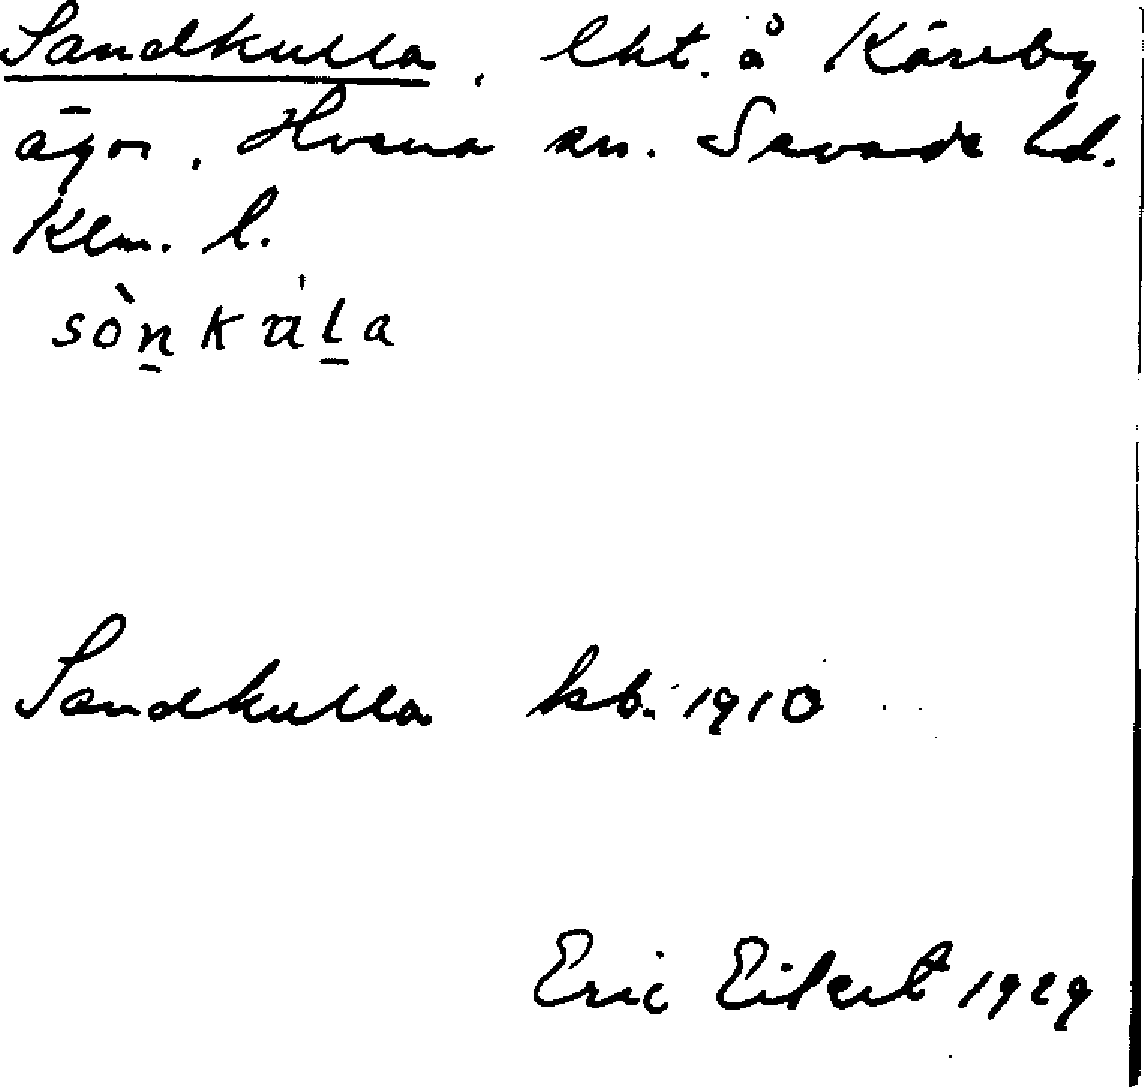 Sandkulla, lht. å Kärrby
ägor, Hvena sn. Sevede hd.
Klm. l.
sònkála
Sandkulla kb. 1910
Eric Eilert 1929